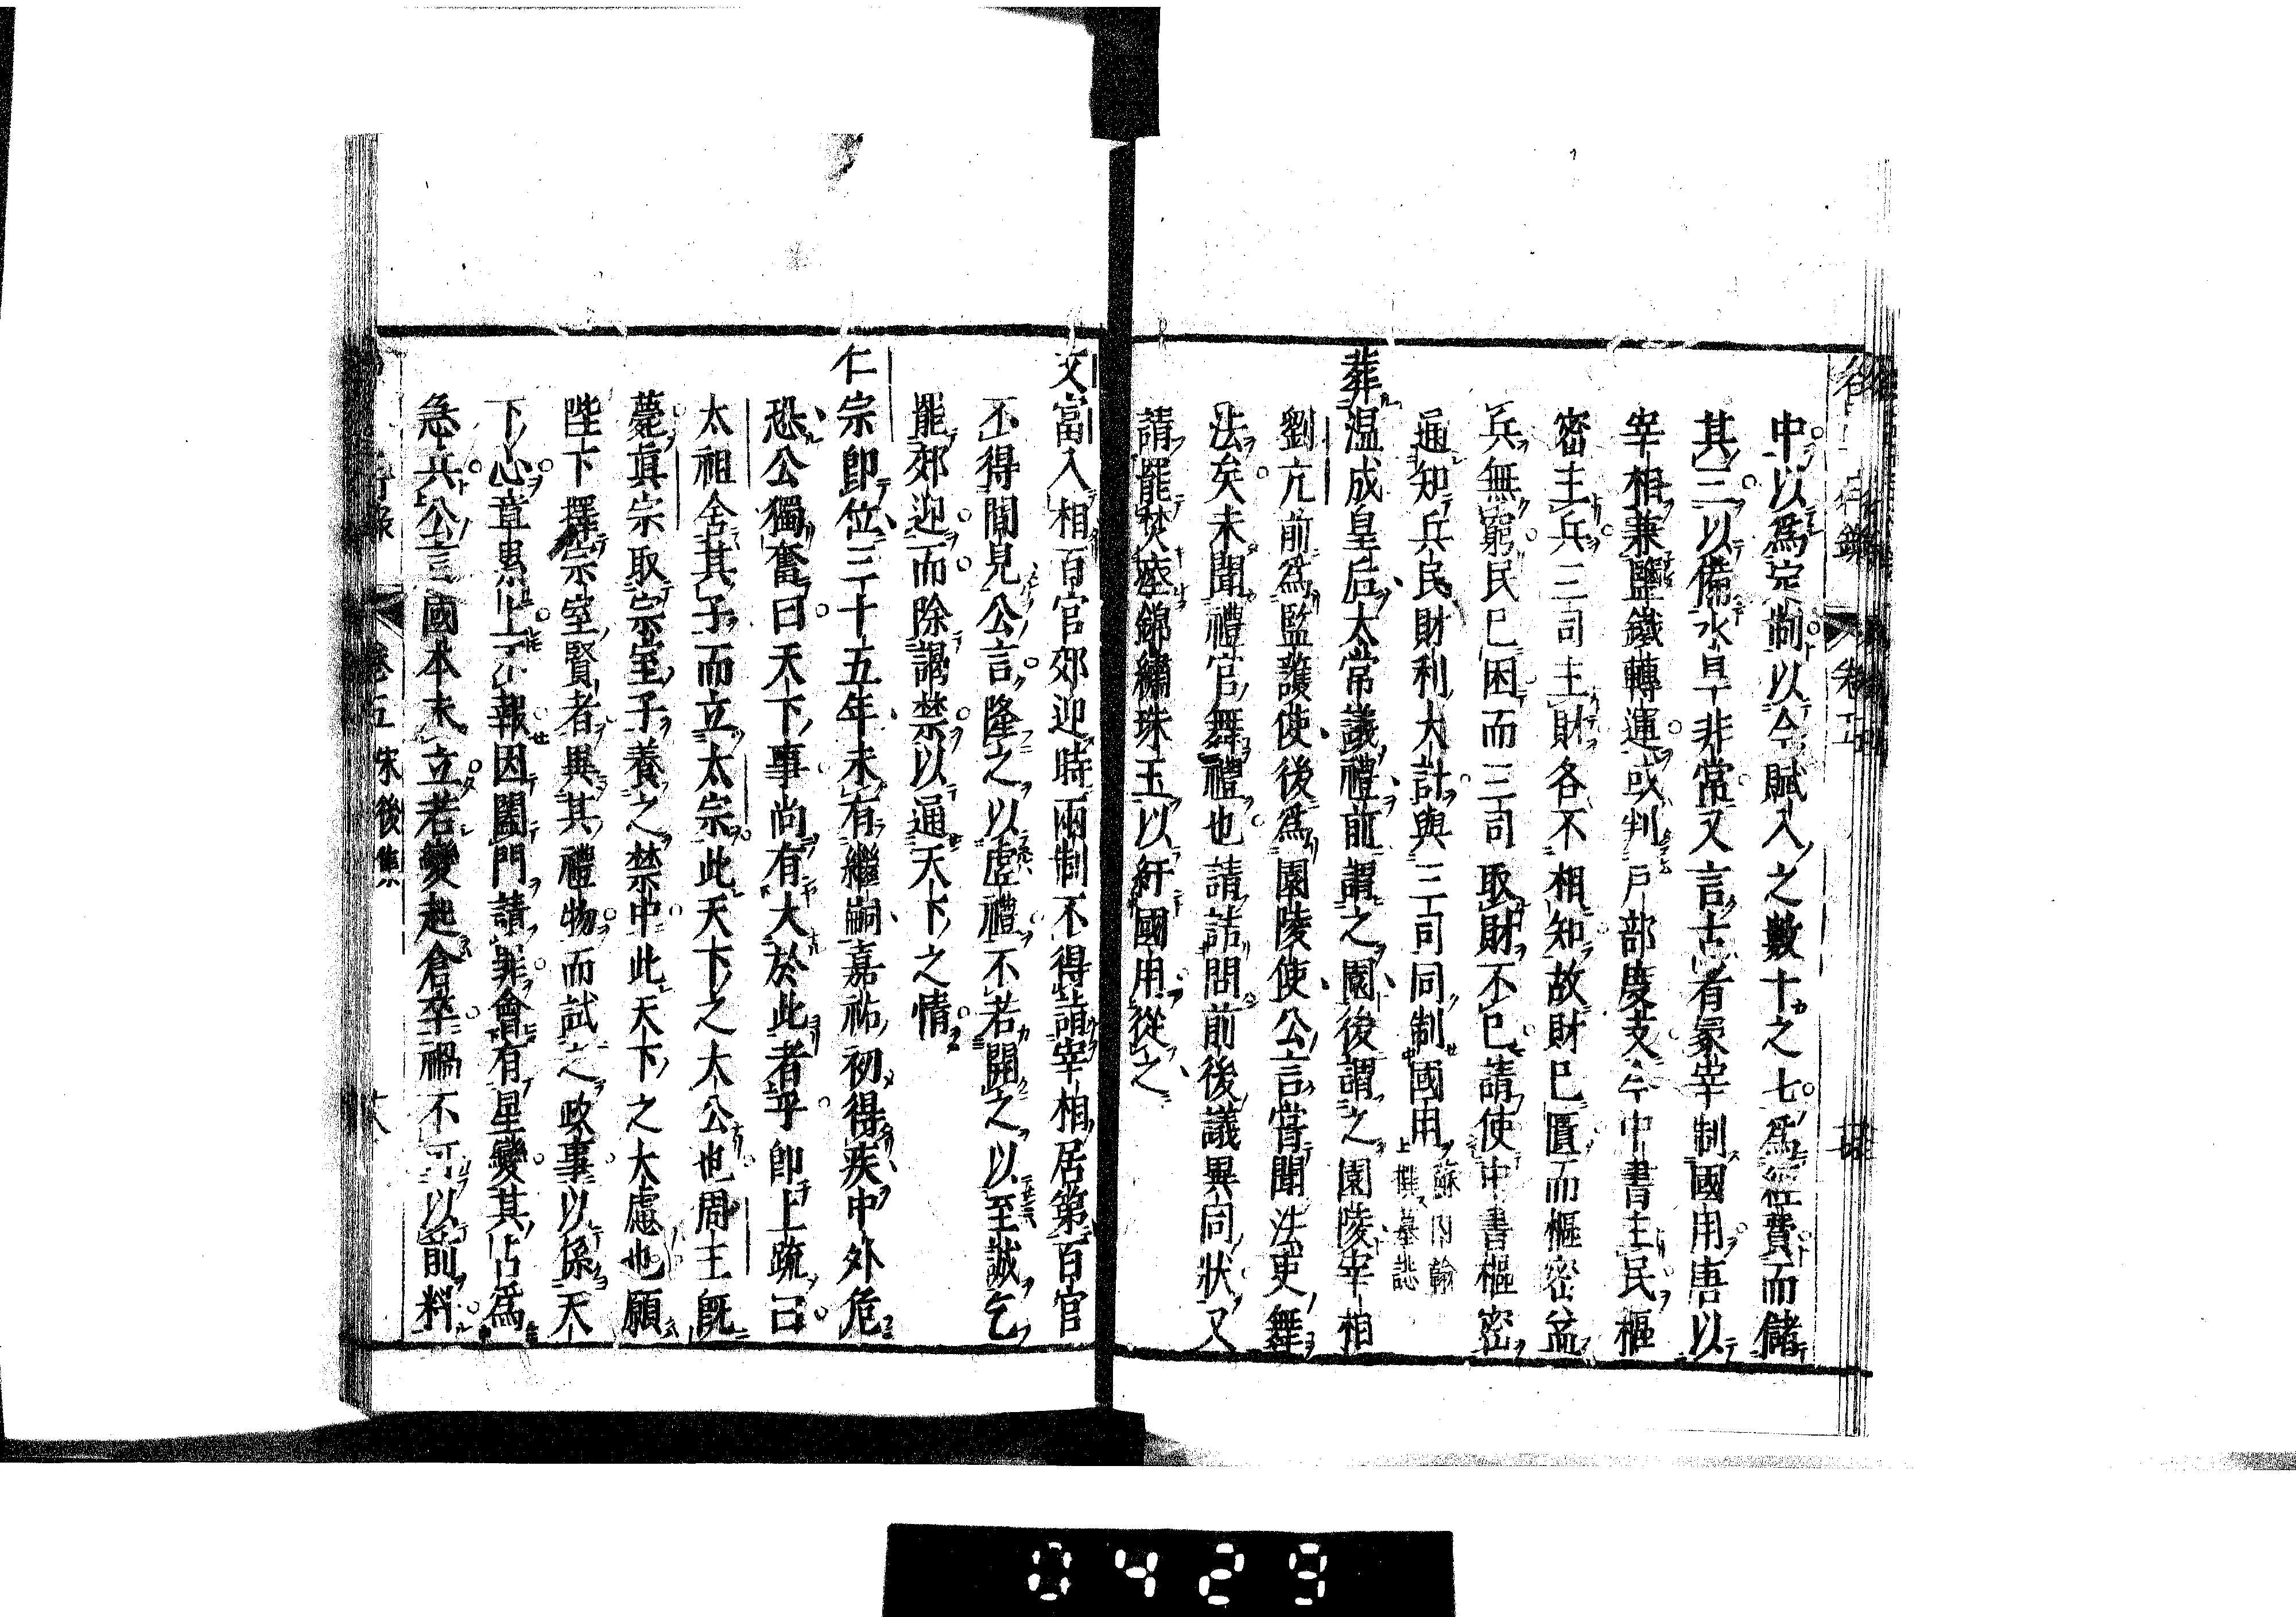 中以爲定制以今賦入之數十之七爲經費而儲
其三以備水旱非常又言古者冢宰制國用唐以
宰相兼鹽鐵轉運或判戸部度支今中書主民樞
密主兵三司主財各不相知故財已匱而樞密益
兵無窮民已困而三司取財不已請使中書樞密
通知兵民財利大計與三司同制國用蘇內翰
上撰墓誌
葬温成皇后太常議禮前謂之園後謂之園陵宰相
劉亢前爲監護使後爲園陵使公言甞聞法吏舞
法矣未聞禮官舞禮也請詰問前後議異同狀又
請罷焚瘞錦繡珠玉以紓國用從之
文富入相百官郊迎時兩制不得詣宰相居第百官
不得間見公言隆之以虚禮不若開之以至誠乞
罷郊迎而除謁禁以通天下之情
仁宗卽位三十五年未有繼嗣嘉祐初得疾中外危
恐公獨奮曰天下事尚有大於此者乎卽上疏曰
太祖舍其子而立太宗此天下之大公也周王旣
薨眞宗取宗室子養之禁中此天下之大慮也願
陛下擇宗室賢者異其禮物而試之政事以係天
下心章累上不報因闔門請罪會有星變其占爲
急兵公言國本未立若變起倉卒禍不可以前料
行錄
卷五
宋後集
0429